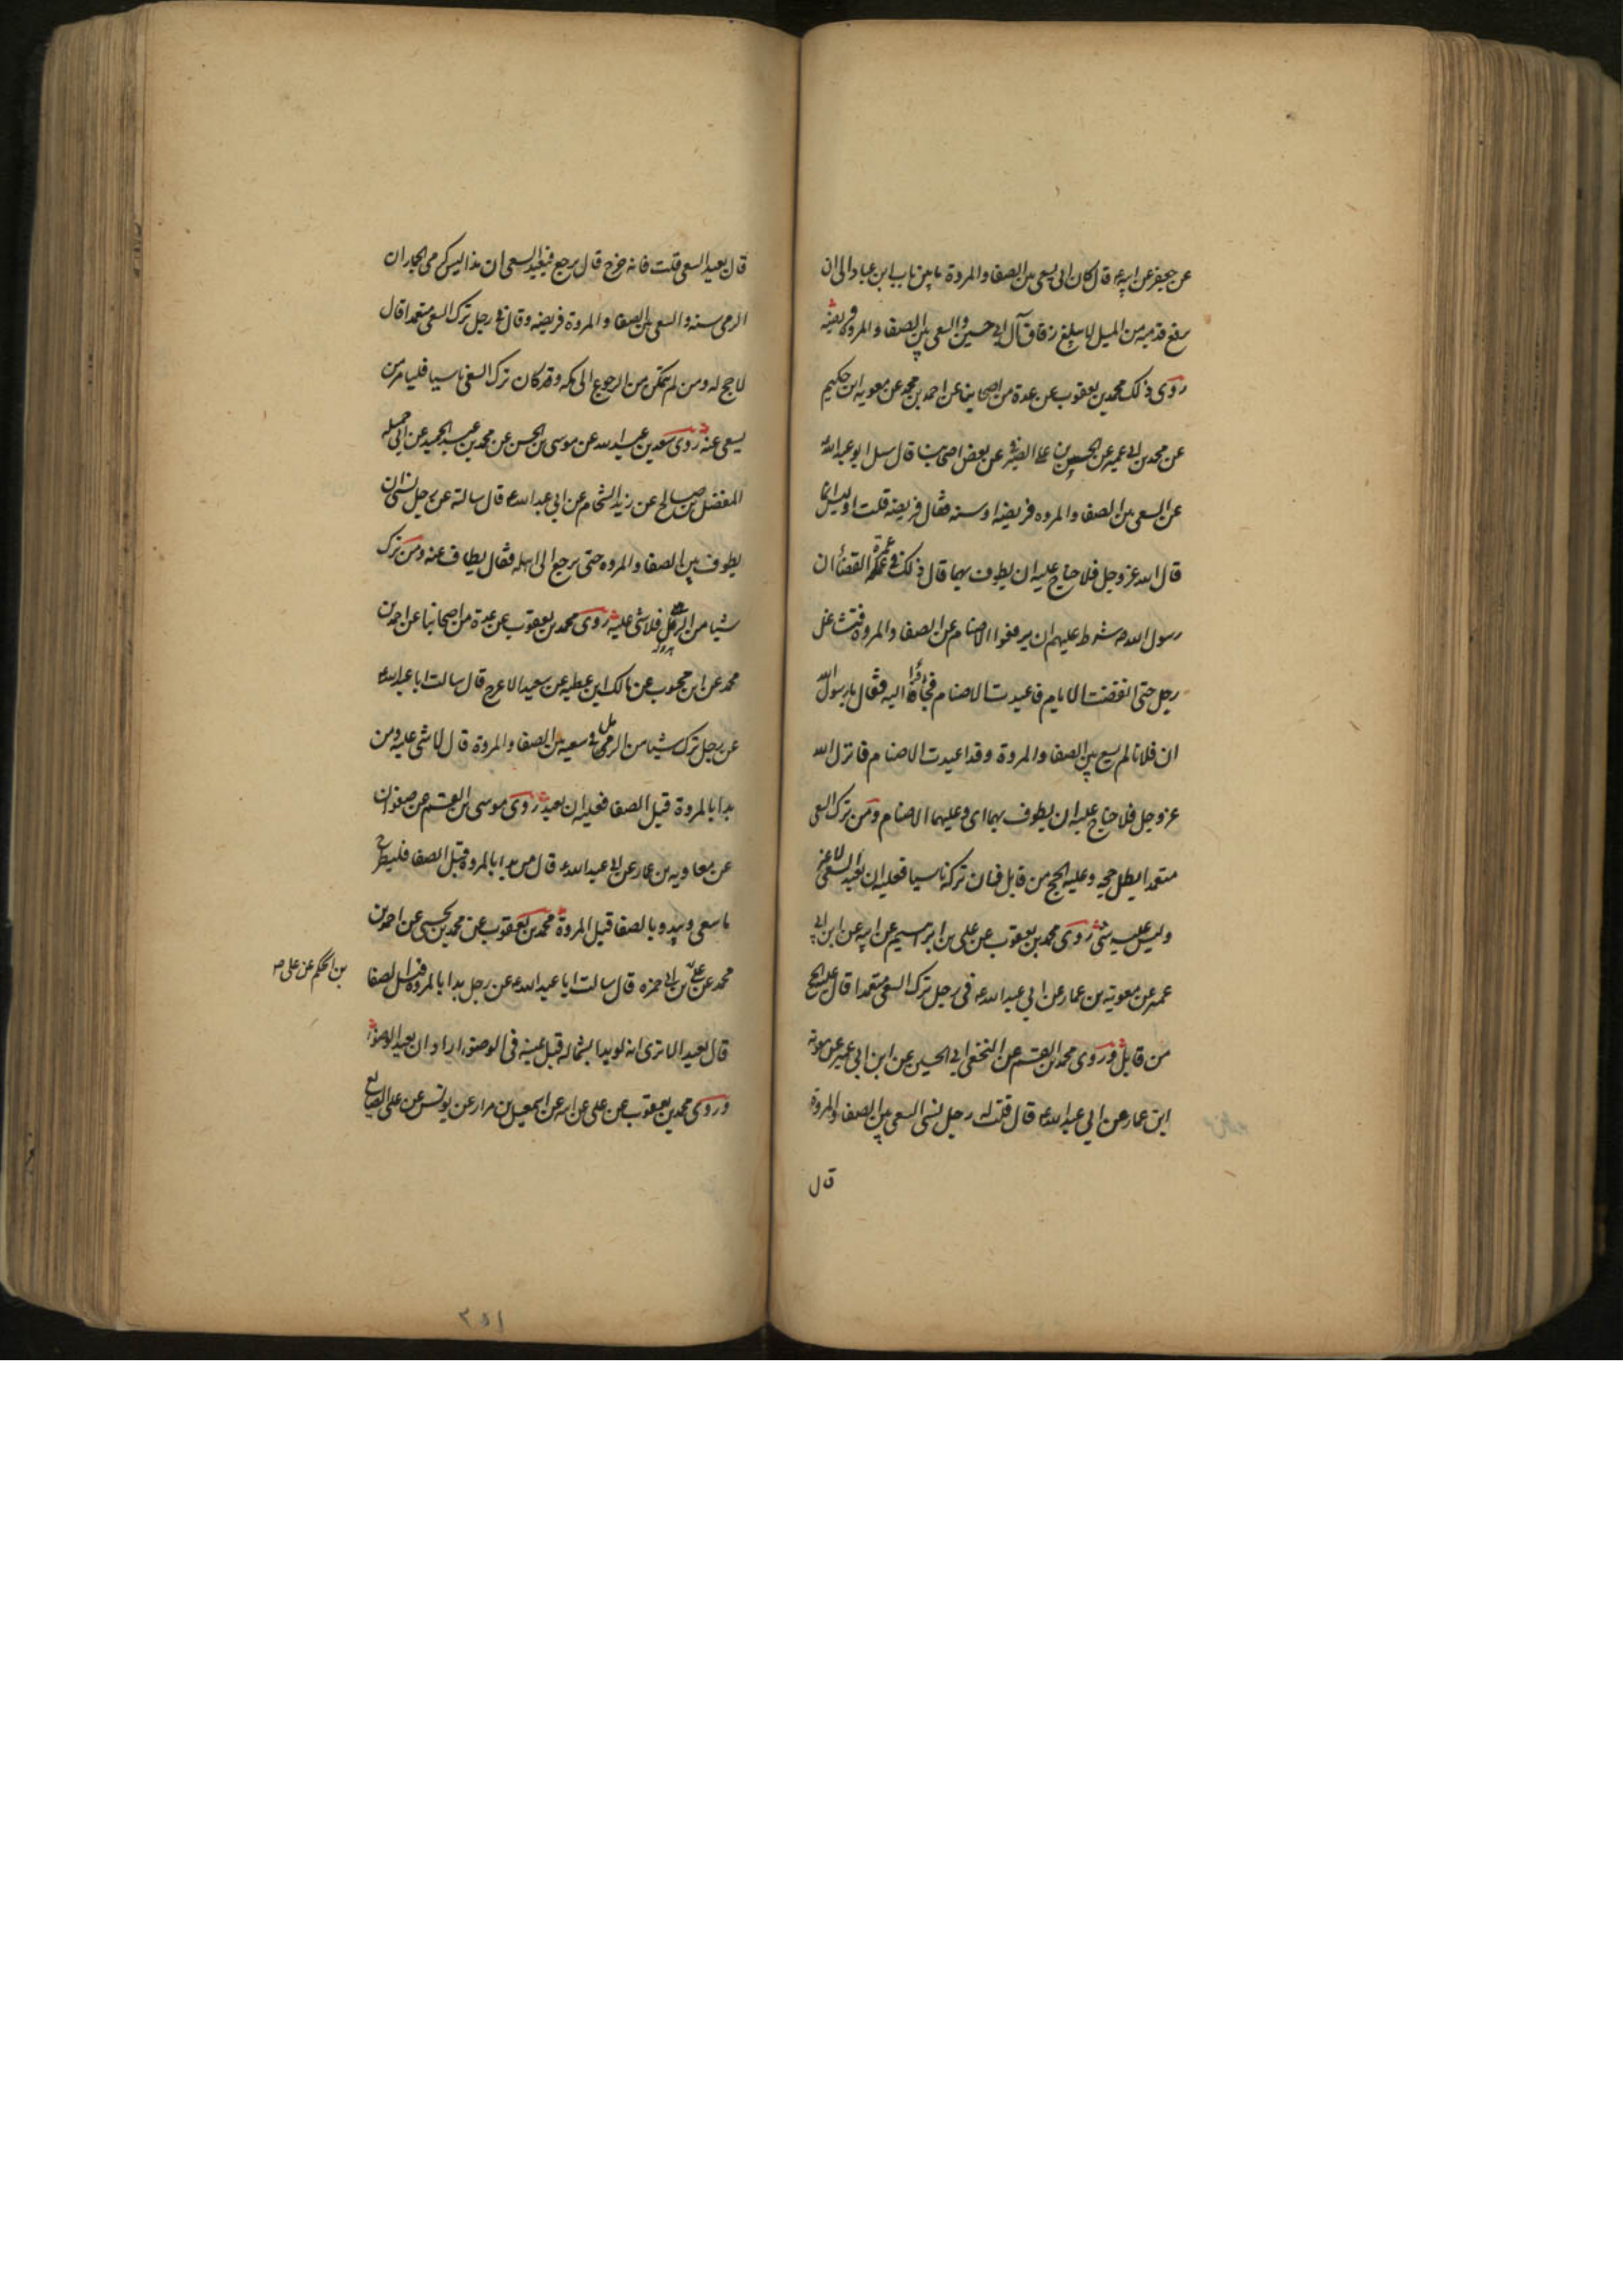 عن جعفر عن ابيه ع قال كان ابى يسعى بين الصفا والمروة ما بين باب ابن عباد الى ان
يرفع قدميه من الميل لا يبلغ زقاق آل ابى حسين والسعى بين الصفا والمروة فريضة
روى ذلك محمد بن يعقوب عن عدة من اصحابنا عن احمد بن محمد عن معوية ابن حكيم
عن محمد بن ابى عمير عن الحسن بن على الصيرفى عن بعض اصحابنا قال سئل ابو عبد الله ع
عن السعى بين الصفا والمروه فريضة اوسنه فقال فريضه قلت اوليس انما
قال الله عز وجل فلا جناح عليه ان يطوف بهما قال ذلك فى عمرة القضاء ان
رسول الله ص شرط عليهم ان يرفعوا الاصنام عن الصفا والمروة فتشاغل
رجل حتى انقضت الايام فاعيدت الاصنام فجاؤا اليه فقال يا رسول الله
ان فلانا لم يسع بين الصفا والمروة وقد اعيدت الاصنام فانزل الله
عز وجل فلا جناح عليه ان يطوف بهما اى وعليهما الاصنام ومن ترك السعى
متعمدا بطل حجه وعليه الحج من قابل فان تركه ناسيا فعليه ان يعيد السعى لا غير
وليس عليه شئ روى محمد بن يعقوب عن على بن ابراهيم عن ابيه عن ابن ابى
عمير عن معوية بن عمار عن ابي عبد الله ع فى رجل ترك السعى متعمدا قال عليه الحج
من قابل وروى محمد بن القسم عن النخعى ابى الحسين عن ابن ابى عمير عن معوية
ابن عمار عن ابي عبد الله ع قال قلت له رجل نسى السعى بين الصفا والمروة
قال
قال يعيد السعى قلت فانه خرج قال يرجع فيعيد السعى ان هذا ليس كرمى الجمار ان
الرمى سنه والسعى بين الصفا والمروة فريضه وقال فى رجل ترك السعى متعمدا قال
لا حج له ومن لم يتمكن من الرجوع الى مكه وقد كان ترك السعى ناسيا فليامر من
يسعى عنه روى سعد بن عبد الله عن موسى بن الحسن عن محمد بن عبد الحميد عن ابى جميله
المفضل بن صالح عن زيد الشحام عن ابى عبد الله ع قال سالته عن رجل نسى ان
يطوف بين الصفا والمروه حتى يرجع الى اهله فقال يطاف عنه ومن ترك
شيا من الرمل فلا شى عليه روى محمد بن يعقوب عن عدة من اصحابنا عن احمد بن
محمد عن ابن محبوب عن مالك ابن عطيه عن سعيد الاعرج قال سالت ابا عبد الله ع
عن رجل ترك شيا من الرمل فى سعيه بين الصفا والمروة قال لا شى عليه ومن
بدا بالمروة قبل الصفا فعليه ان يعيد روى موسى بن القسم عن صفوان
عن معاويه بن عمار عن ابى عبد الله ع قال من بدا بالمروة قبل الصفا فليطرح
ما سعى ويبدو بالصفا قبل المروة محمد بن يعقوب عن محمد بن يحيى عن احمد بن
محمد عن على بن ابى حمزه قال سالت ابا عبد الله ع عن رجل بدا بالمروة قبل الصفا
بن الحكم عن على ص
قال يعيد الا ترى انه لو بدا بشماله قبل يمينه فى الوضوء اراد ان يعيد الوضوء
وروى محمد بن يعقوب عن على عن ابيه عن اسمعيل بن مرار عن يونس عن على الصايغ
٢٥١